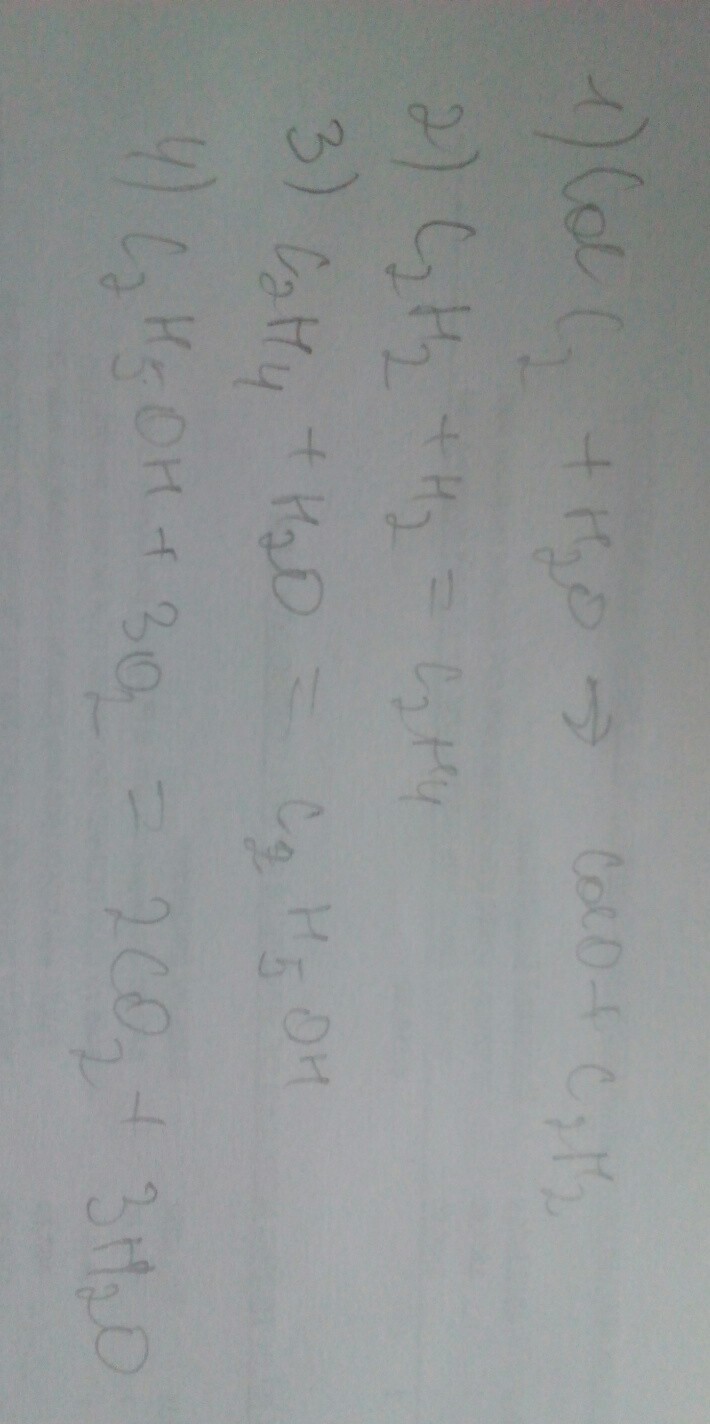 1) CaC₂ + H₂O → CaO + C₂H₂
2) C₂H₂ + H₂ = C₂H₄
3) C₂H₄ + H₂O = C₂H₅OH
4) C₂H₅OH + 3O₂ = 2CO₂ + 3H₂O